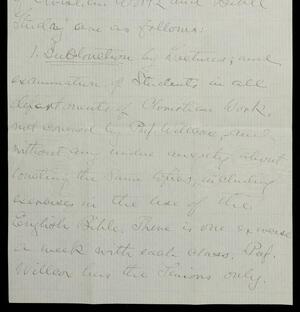 of Christian Work and Bible
Study are as follows:
1. Instruction by Lectures, and
examination of Students in all
departments of Christian Work,
not covered by Prof. Willcox, and
without any undue anxiety about
touching the same topics, including
exercises in the use of the
English Bible. There is one exercise
a week with each class. Prof.
Willcox has the Seniors only.